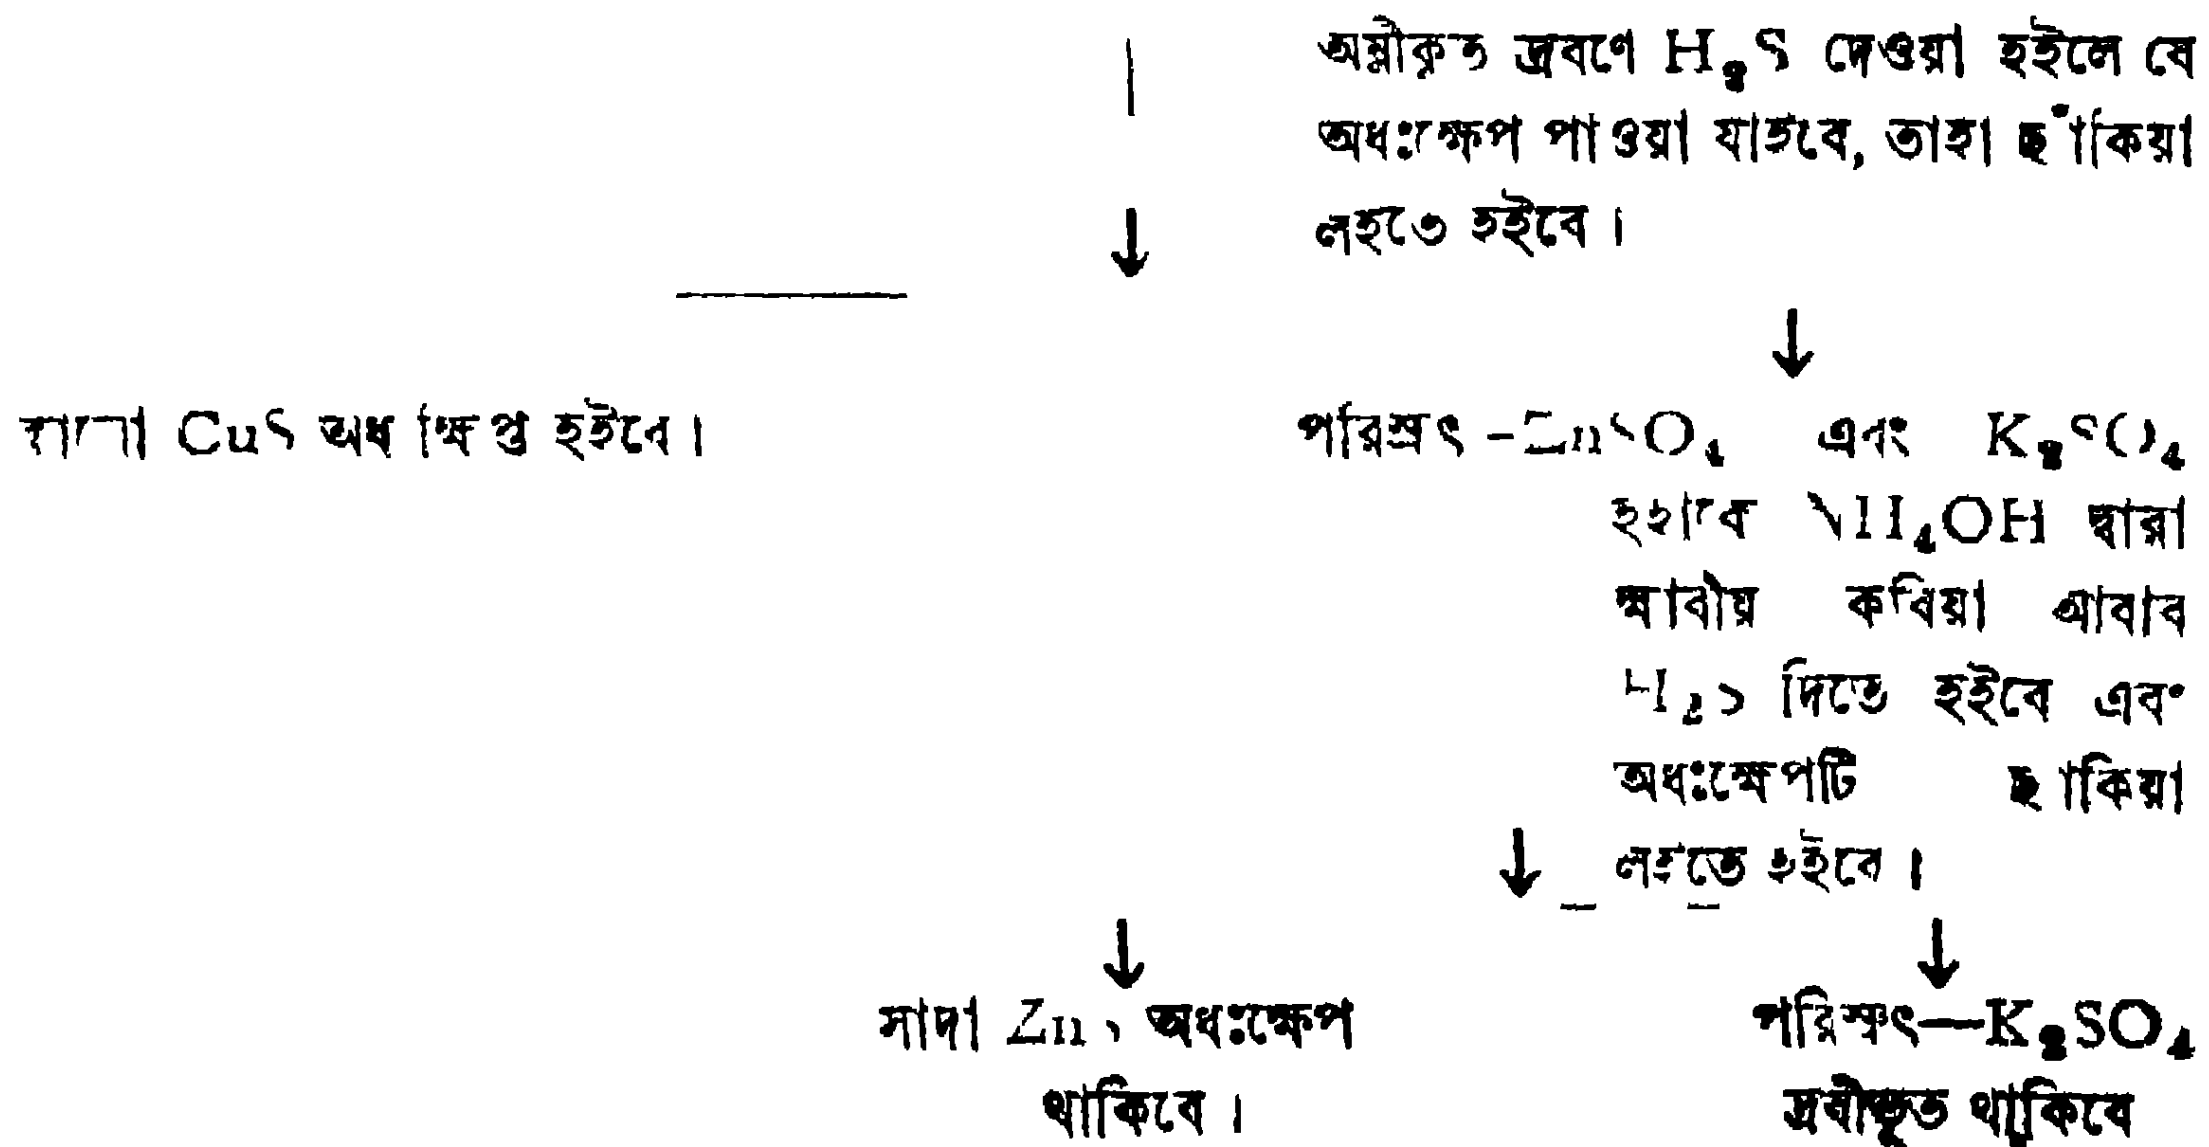 অম্লীকৃত দ্রবণে H₂S দেওয়া হইলে যে
অধঃক্ষেপ পাওয়া যাইবে, তাহা ছাঁকিয়া
লইতে হইবে।
কালো CuS অধঃক্ষিপ্ত হইবে।
পরিস্রুৎ—ZnSO₄ এবং K₂SO₄
ইহাকে NH₄OH দ্বারা
ক্ষারীয় করিয়া আবার
H₂S দিতে হইবে এবং
অধঃক্ষেপটি ছাঁকিয়া
লইতে হইবে।
সাদা ZnS অধঃক্ষেপ
থাকিবে।
পরিস্রুৎ—K₂SO₄
দ্রবীভূত থাকিবে